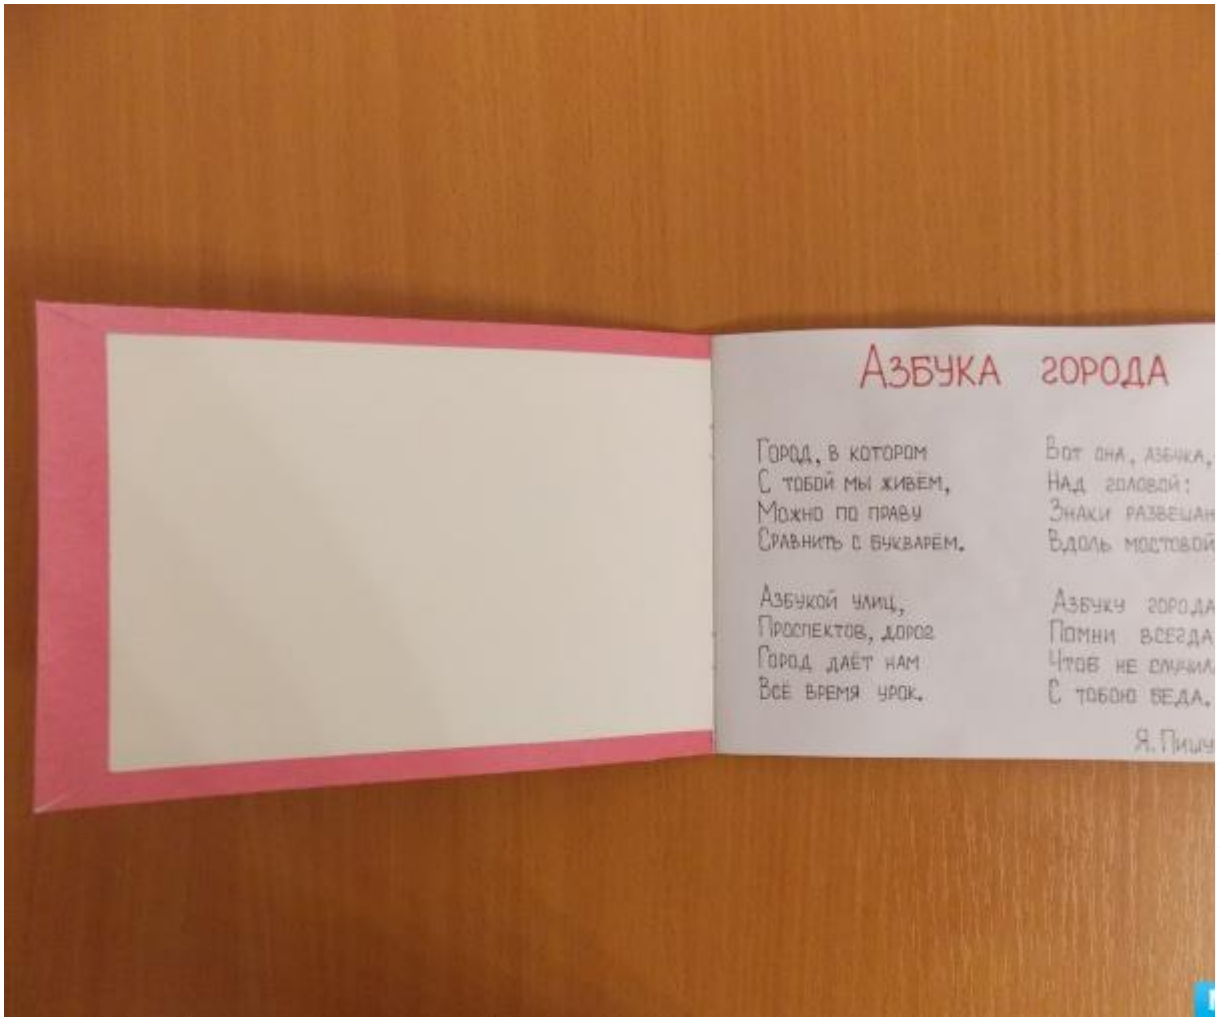 Азбука города
Город, в котором
С тобой мы живём,
Можно по праву
Сравнить с букварём.
Азбукой улиц,
Проспектов, дорог
Город даёт нам
Всё время урок.
Вот она, азбука,
Над головой:
Знаки развешан
Вдоль мостовой
Азбуку города
Помни всегда
Чтоб не случил
С тобою беда.
Я. Пишу